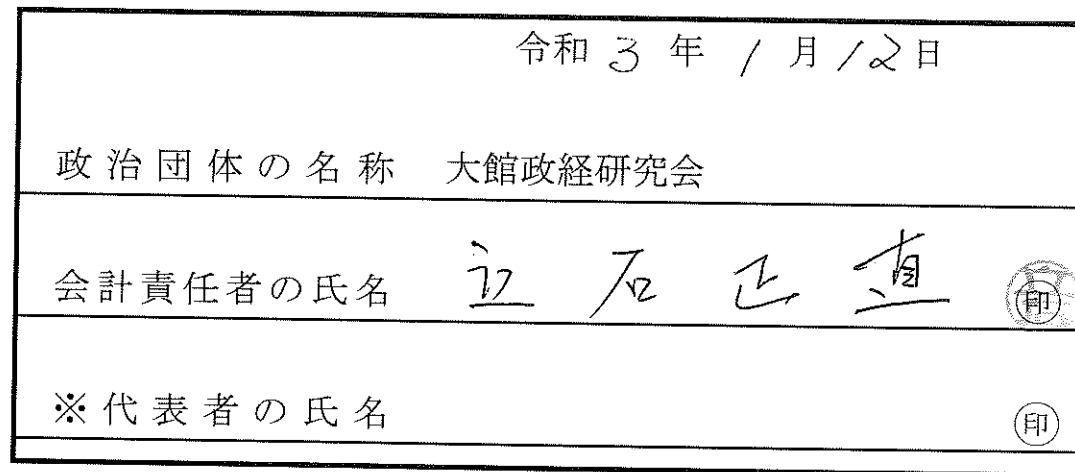 令和 3 年 1 月 12 日
政治団体の名称 大館政経研究会
会計責任者の氏名 立石正直 ㊞
※代表者の氏名 ㊞